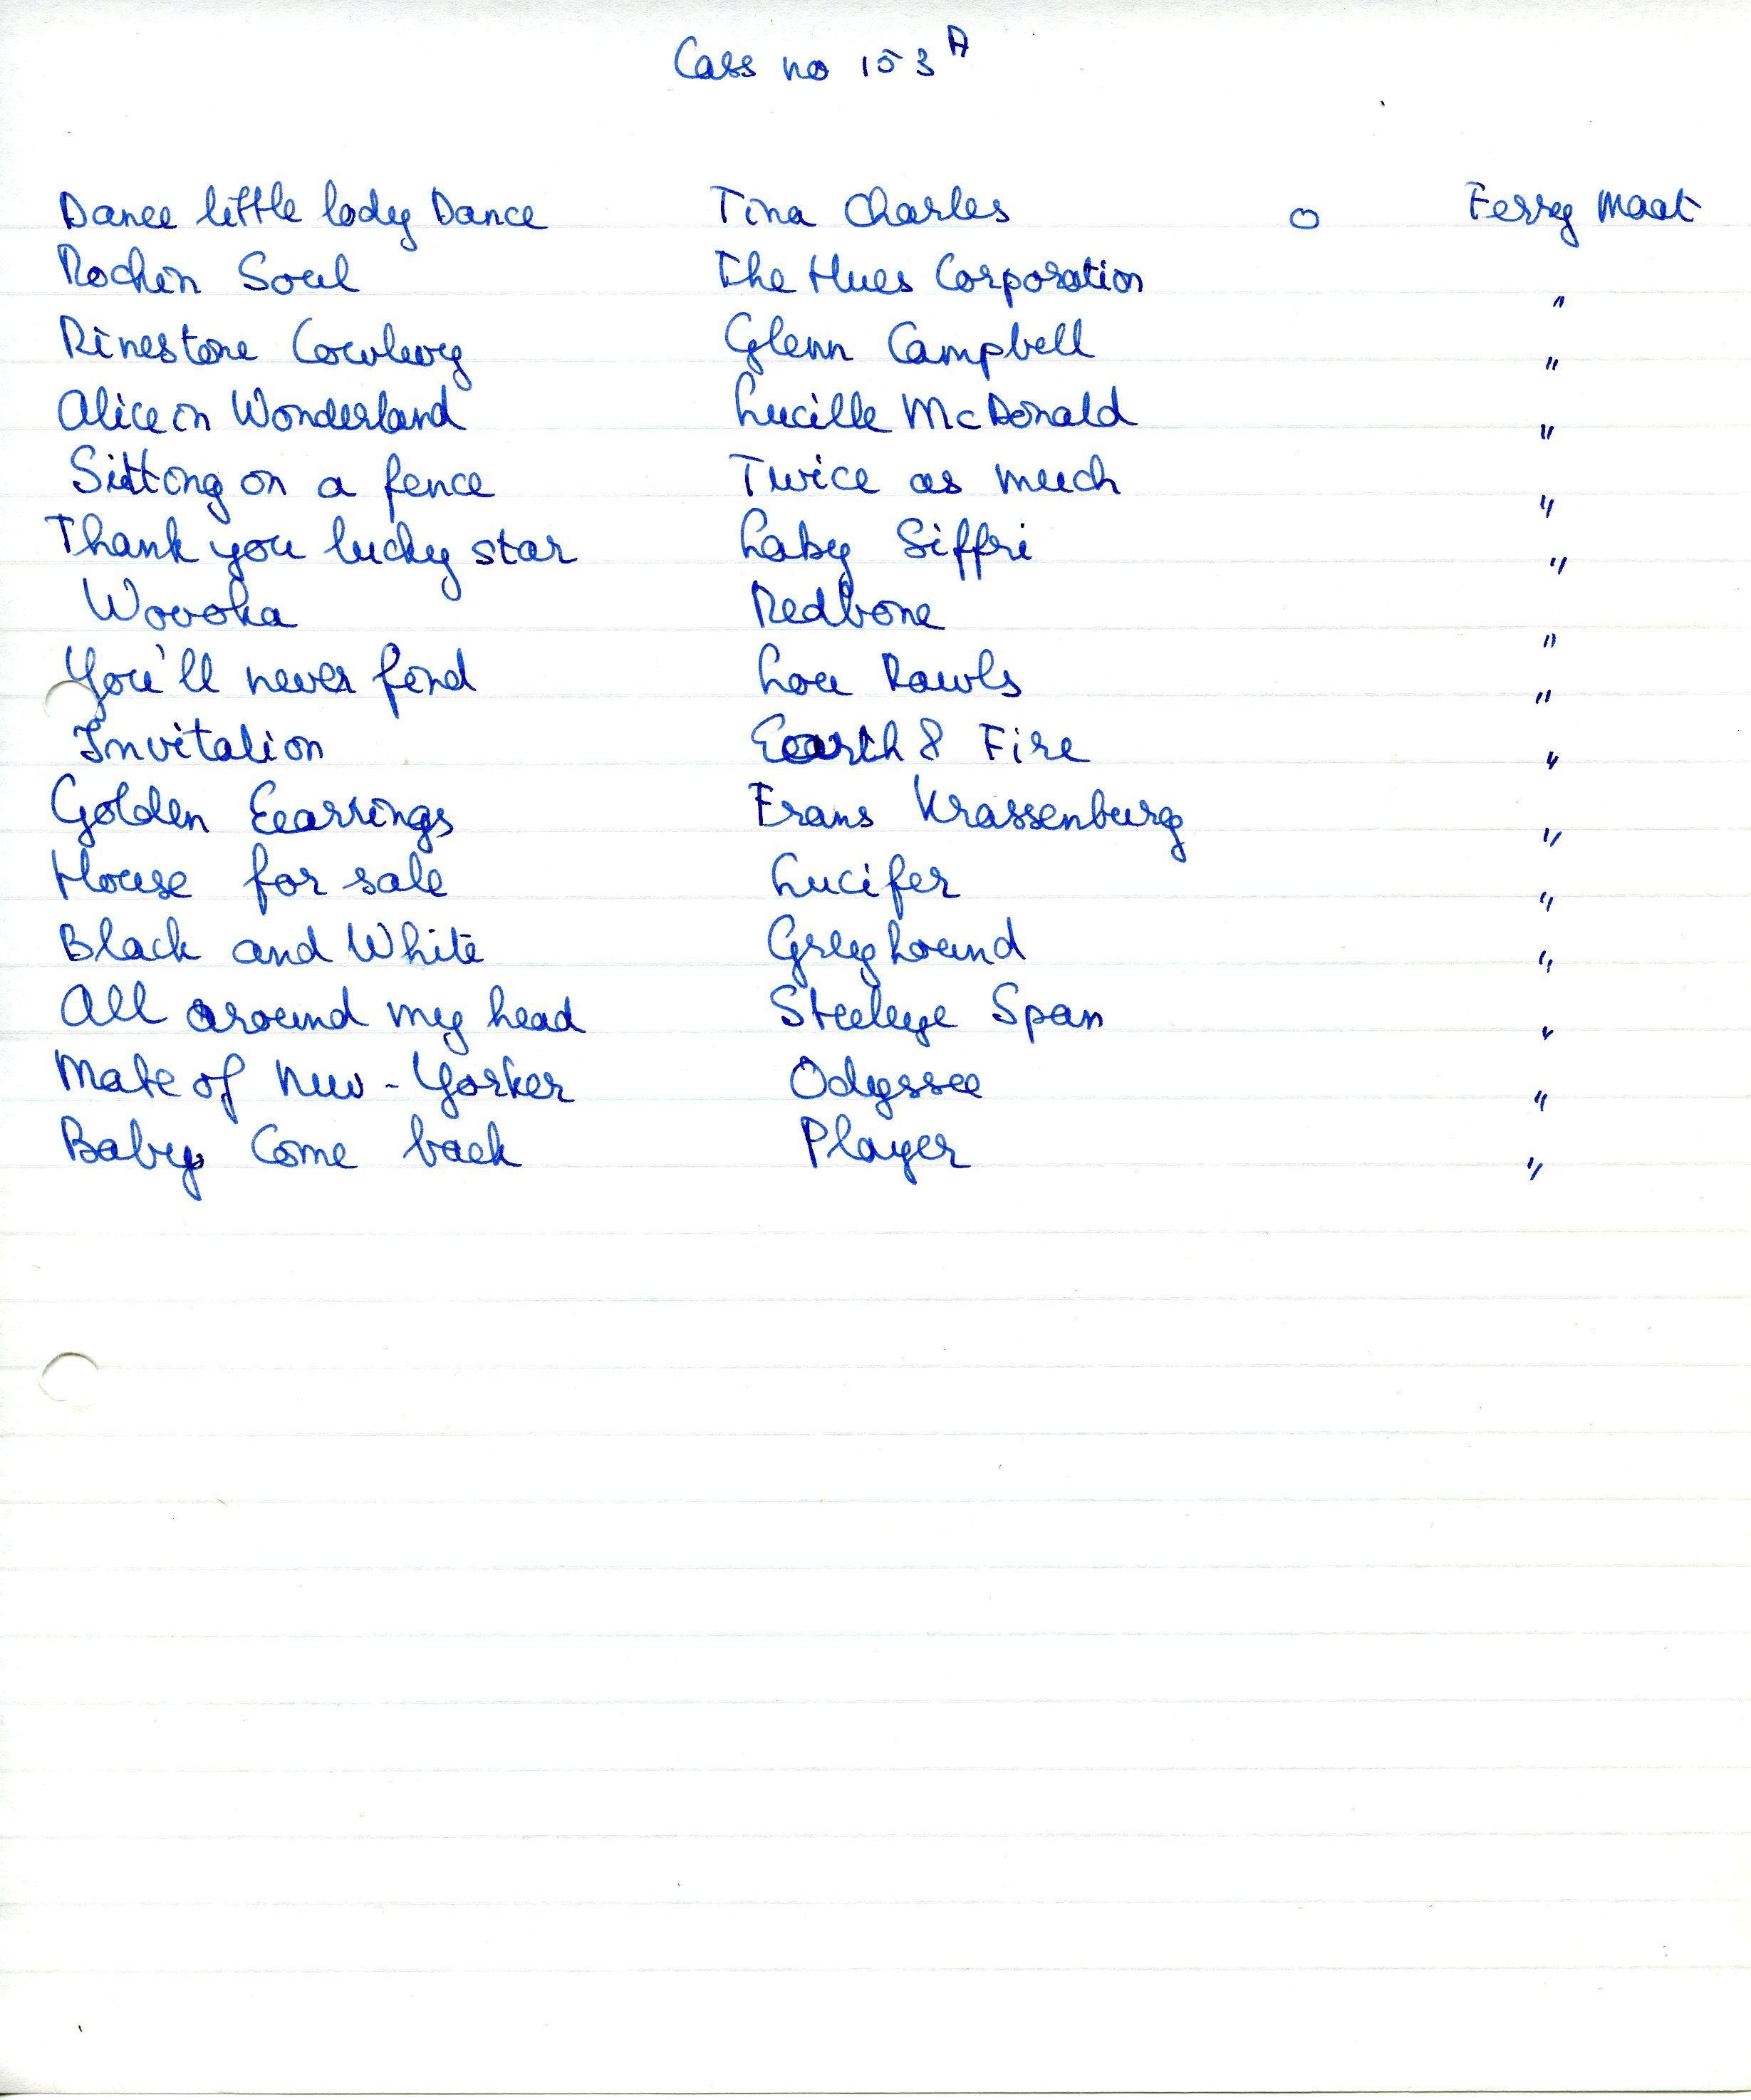 Cass no 153 A
Dance little lady Dance Tina Charles o Ferry Maat
Rockin Soul The Hues Corporation "
Rinestone Cowboy Glenn Campbell "
Alice in Wonderland Lucille McDonald "
Sitting on a fence Twice as much "
Thank you lucky star Laby Siffri "
Wovoka Redbone "
You'll never find Lou Rawls "
Invitation Earth & Fire "
Golden Earrings Frans Krassenburg "
House for sale Lucifer "
Black and White Greyhound "
All around my head Steeleye Span "
Mate of New-Yorker Odyssee "
Baby Come back Player "